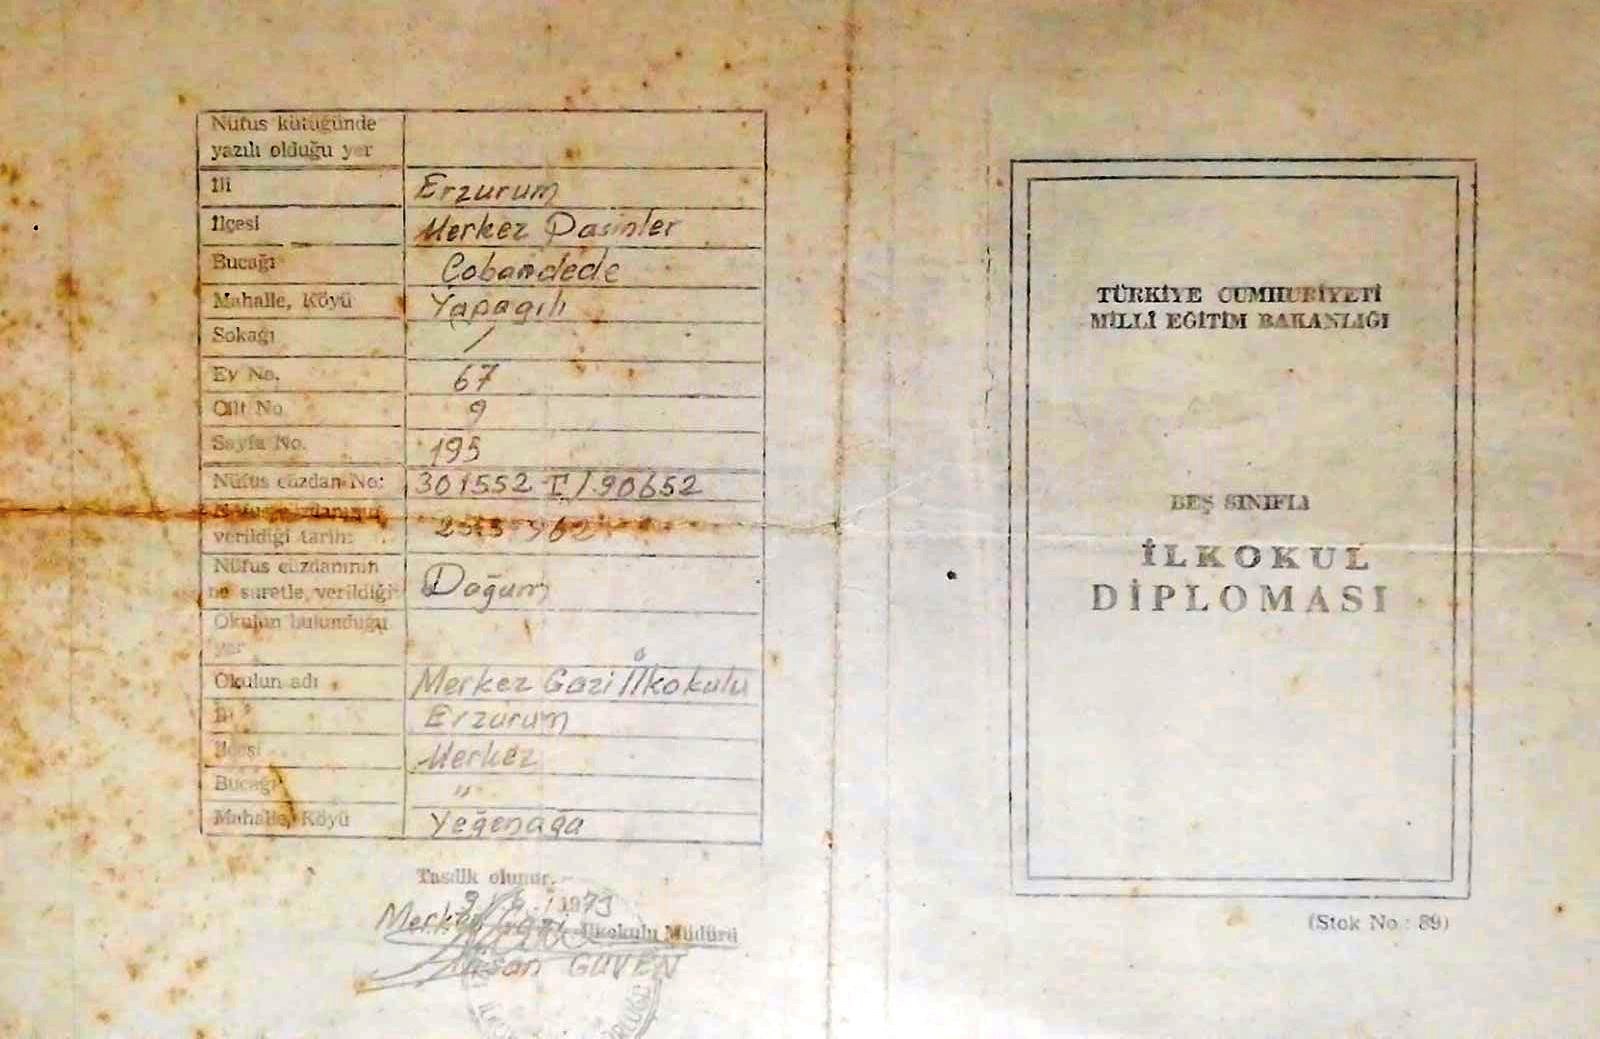 Nüfus kütüğünde
yazılı olduğu yer
İli Erzurum
İlçesi Merkez Pasinler
Bucağı Çobandede
Mahalle, Köyü Yapağılı
Sokağı /
Ev No. 67
Cilt No 9
Sayfa No. 195
Nüfus cüzdan No: 301552 I / 90652
Nüfus cüzdanının
verildiği tarih:
Nüfus cüzdanının
ne suretle verildiği Doğum
Okulun bulunduğu
yer
Okulun adı Merkez Gazi İlkokulu
İli Erzurum
İlçesi Merkez
Bucağı "
Mahalle, Köyü Yeğenağa
Tasdik olunur.
1973
Merkez Gazi İlkokulu Müdürü
GÜVEN
TÜRKİYE CUMHURİYETİ
MİLLÎ EĞİTİM BAKANLIĞI
BEŞ SINIFLI
İLKOKUL
DİPLOMASI
(Stok No : 89)